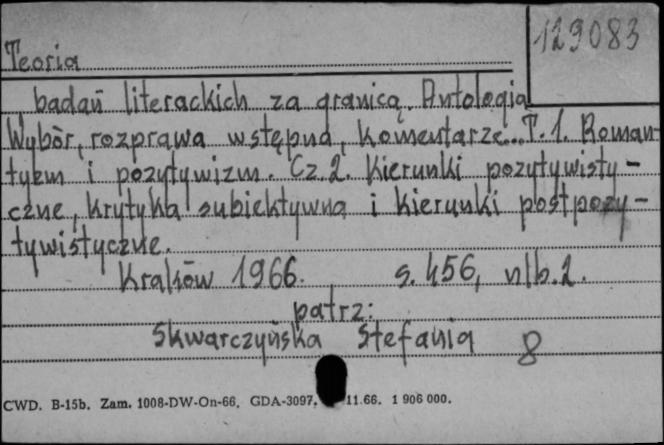 129083
Teoria
badań literackich za granicą. Antologia
Wybór, rozprawa wstępna, komentarze... T. 1. Roman-
tyzm i pozytywizm. Cz. 2. Kierunki pozytywisty-
czne, krytyka subiektywna i kierunki postpozy-
tywistyczne.
Kraków 1966. s. 456, nlb. 2.
patrz:
Skwarczyńska Stefania 8
CWD. B-15b. Zam. 1008-DW-On-66. GDA-3097. 11.66. 1 906 000.